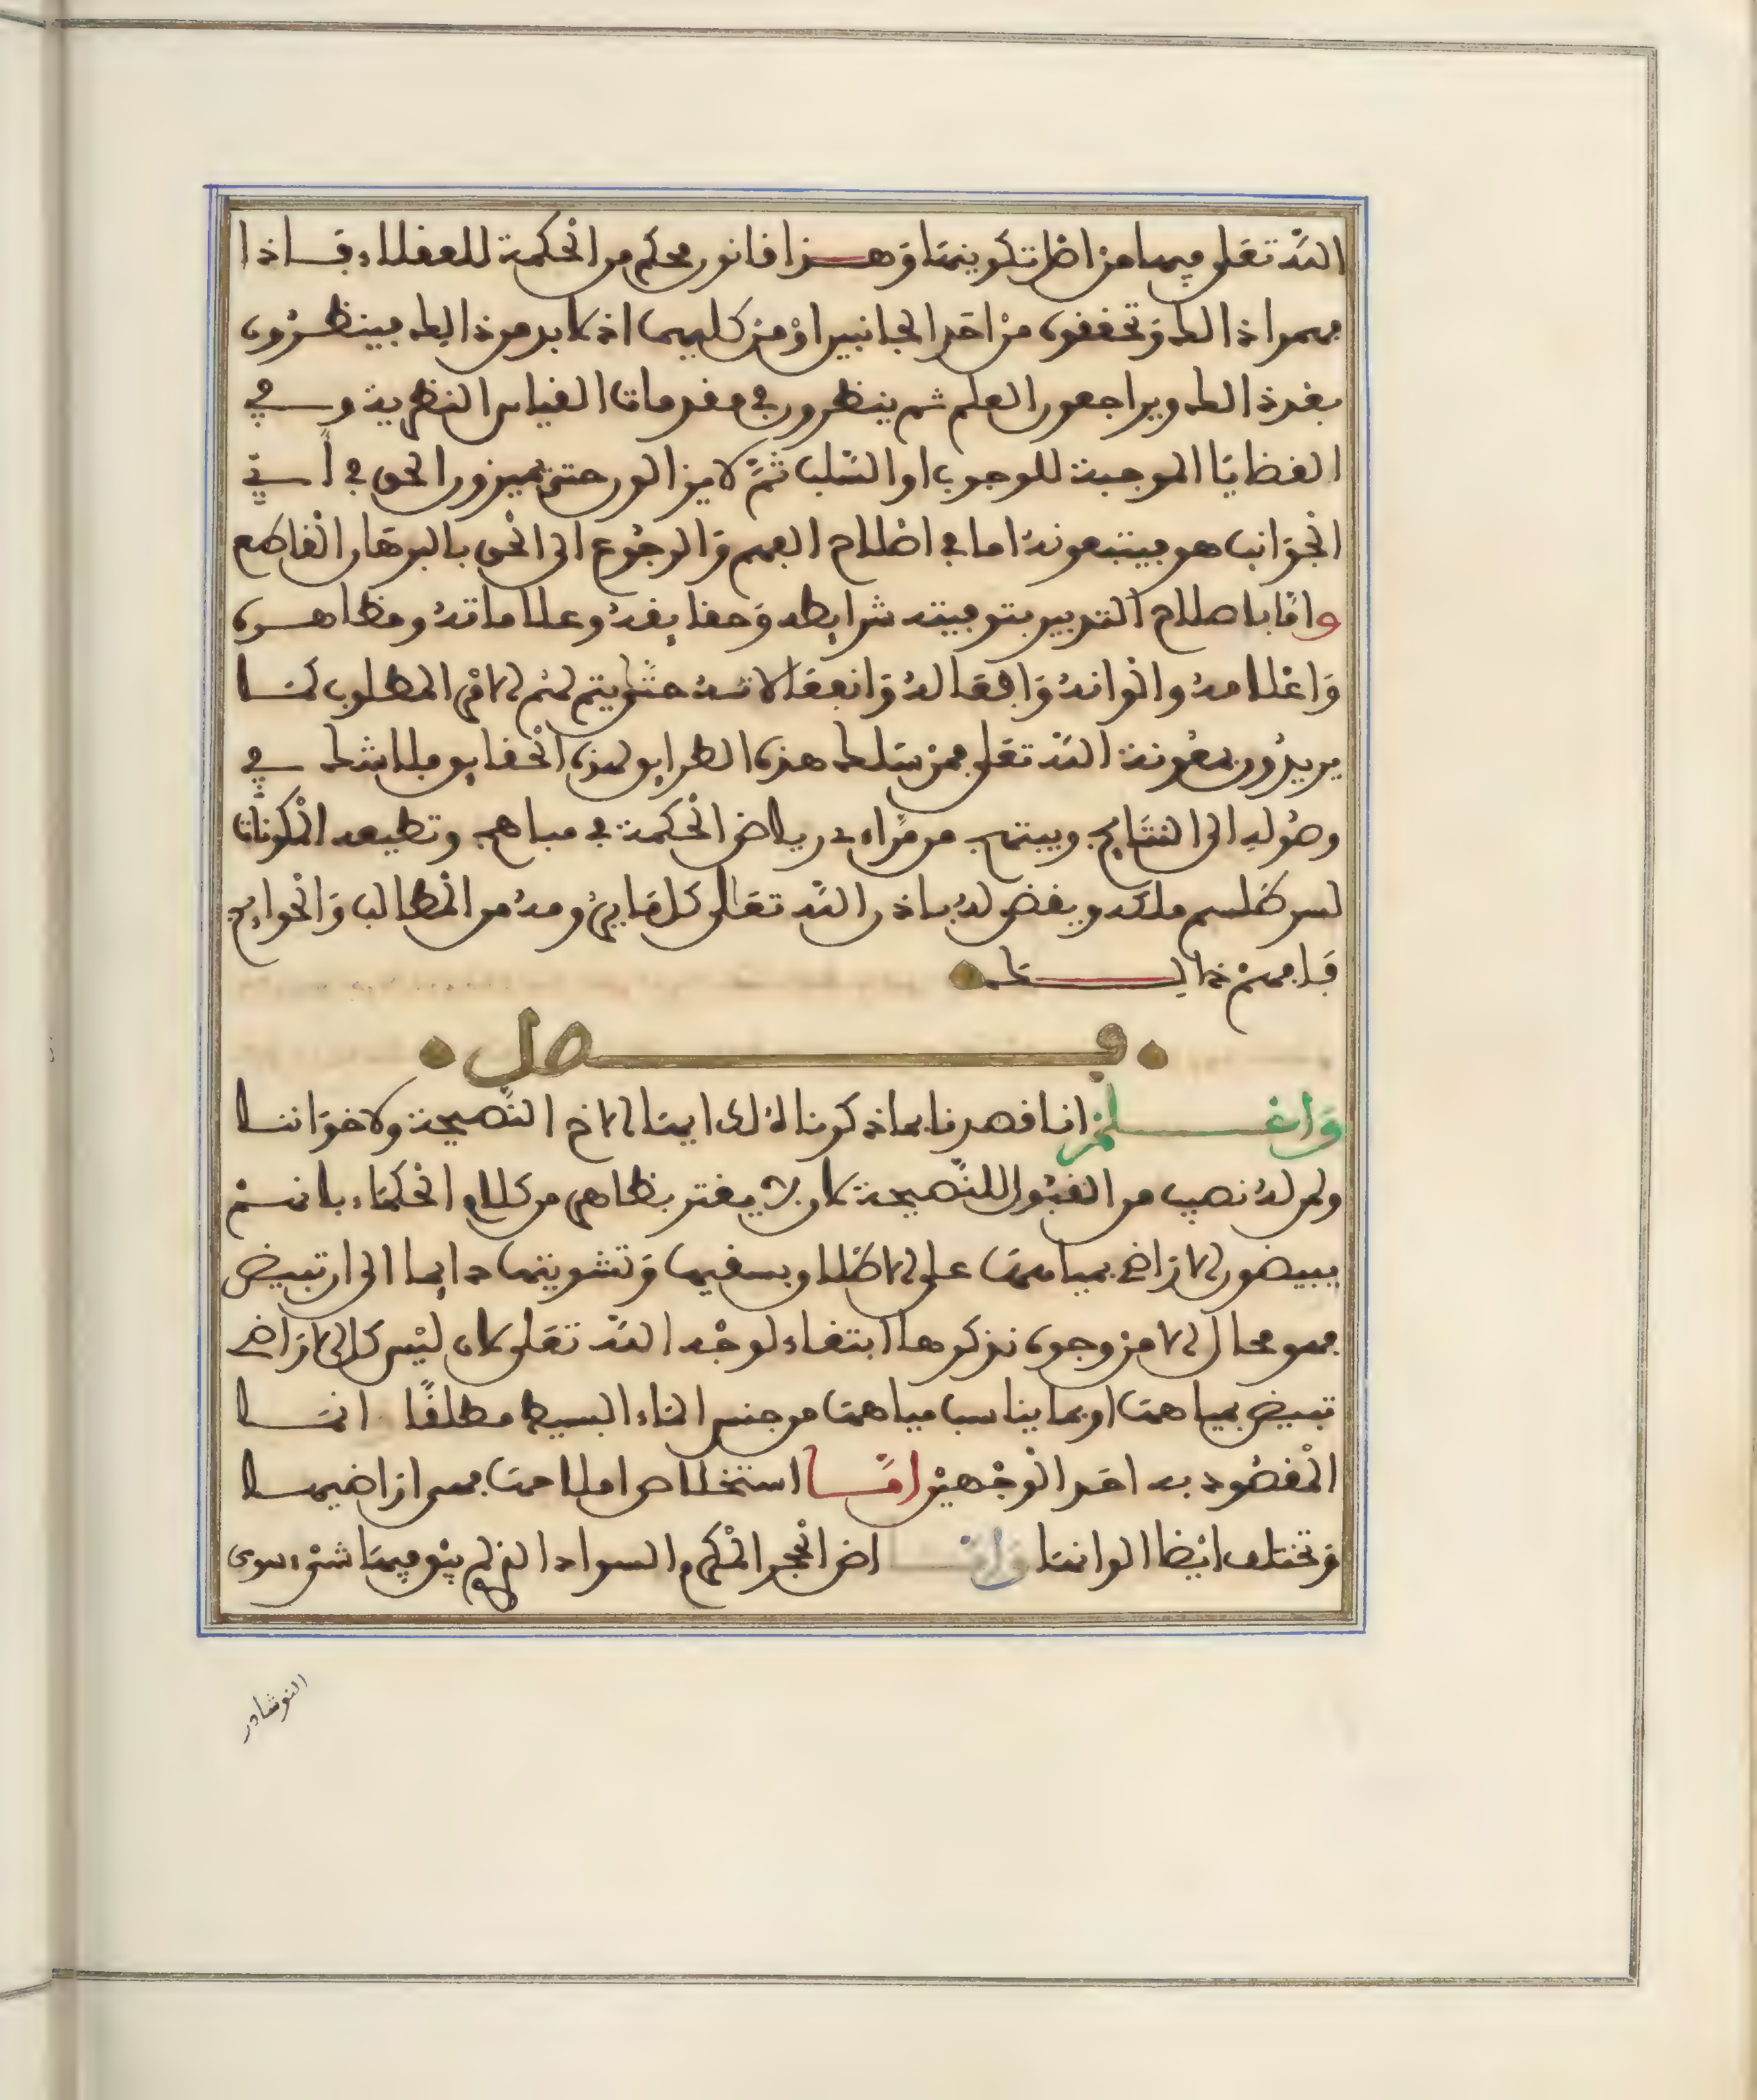 الله تعلى فيها من اصل تكوينها وهذا قانون محكم من الحكمة للعقلاء فاذا
فهموا ذالك وتحققوه من احد الجانبين او من كليهما اذ لا بد من ذالك فينظرون
بعد ذالك ويراجعون العلم ثم ينظرون في مقدمات القياس النظرية وفي
القضايا الموجبة للوجوب او السلب ثم لا يزالون حتى يميزون الحق في أي
الجوانب هو فيتبعونه اما في اصلاح الفهم والرجوع الى الحق بالبرهان القاطع
واما باصلاح التدبير بتوفيته شرايطه وحقايقه وعلاماته ومظاهره
واعلامه والوانه وافعاله وانفعالاته حتى يتم لهم الامر المطلوب كما
يريدون بمعونة الله تعلى فمن سلك هذه الطرايق لهذه الحقايق فلا شك في
وصوله الى النتايج وينتهي من مراده رياض الحكمة في مباهج وتطيعه المكونات
لسر طلسم ملكه ويقضى له باذن الله تعالى كل ما يرومه من المطالب والحوايج
فافهم ذالك
فصل
واعلم انا قصدنا بما ذكرنا لك ايها الاخ النصيحة ولاخواننا
ولمن له نصيب من القبول للنصيحة لان لا يغتر بظاهر من كلام الحكماء بانهم
يبيضون الاراضي بمياهها على الاطلاق بسقيها وتشويتها دايما الى ان تبيض
فهو محال الا من وجوه نذكرها ابتغاء لوجه الله تعلى لان ليس كل الاراضي
تبيض بمياهها او بما يناسب مياهها من جنس الماء البسيط مطلقا انما
المقصود به احد الوجهين اما استخلاص املاحها فهي اراضيها
وتختلف ايضا الوانها واما ارض الحجر المكرم والسواد الذي لم يبق فيها شيء سوى
النوشادر